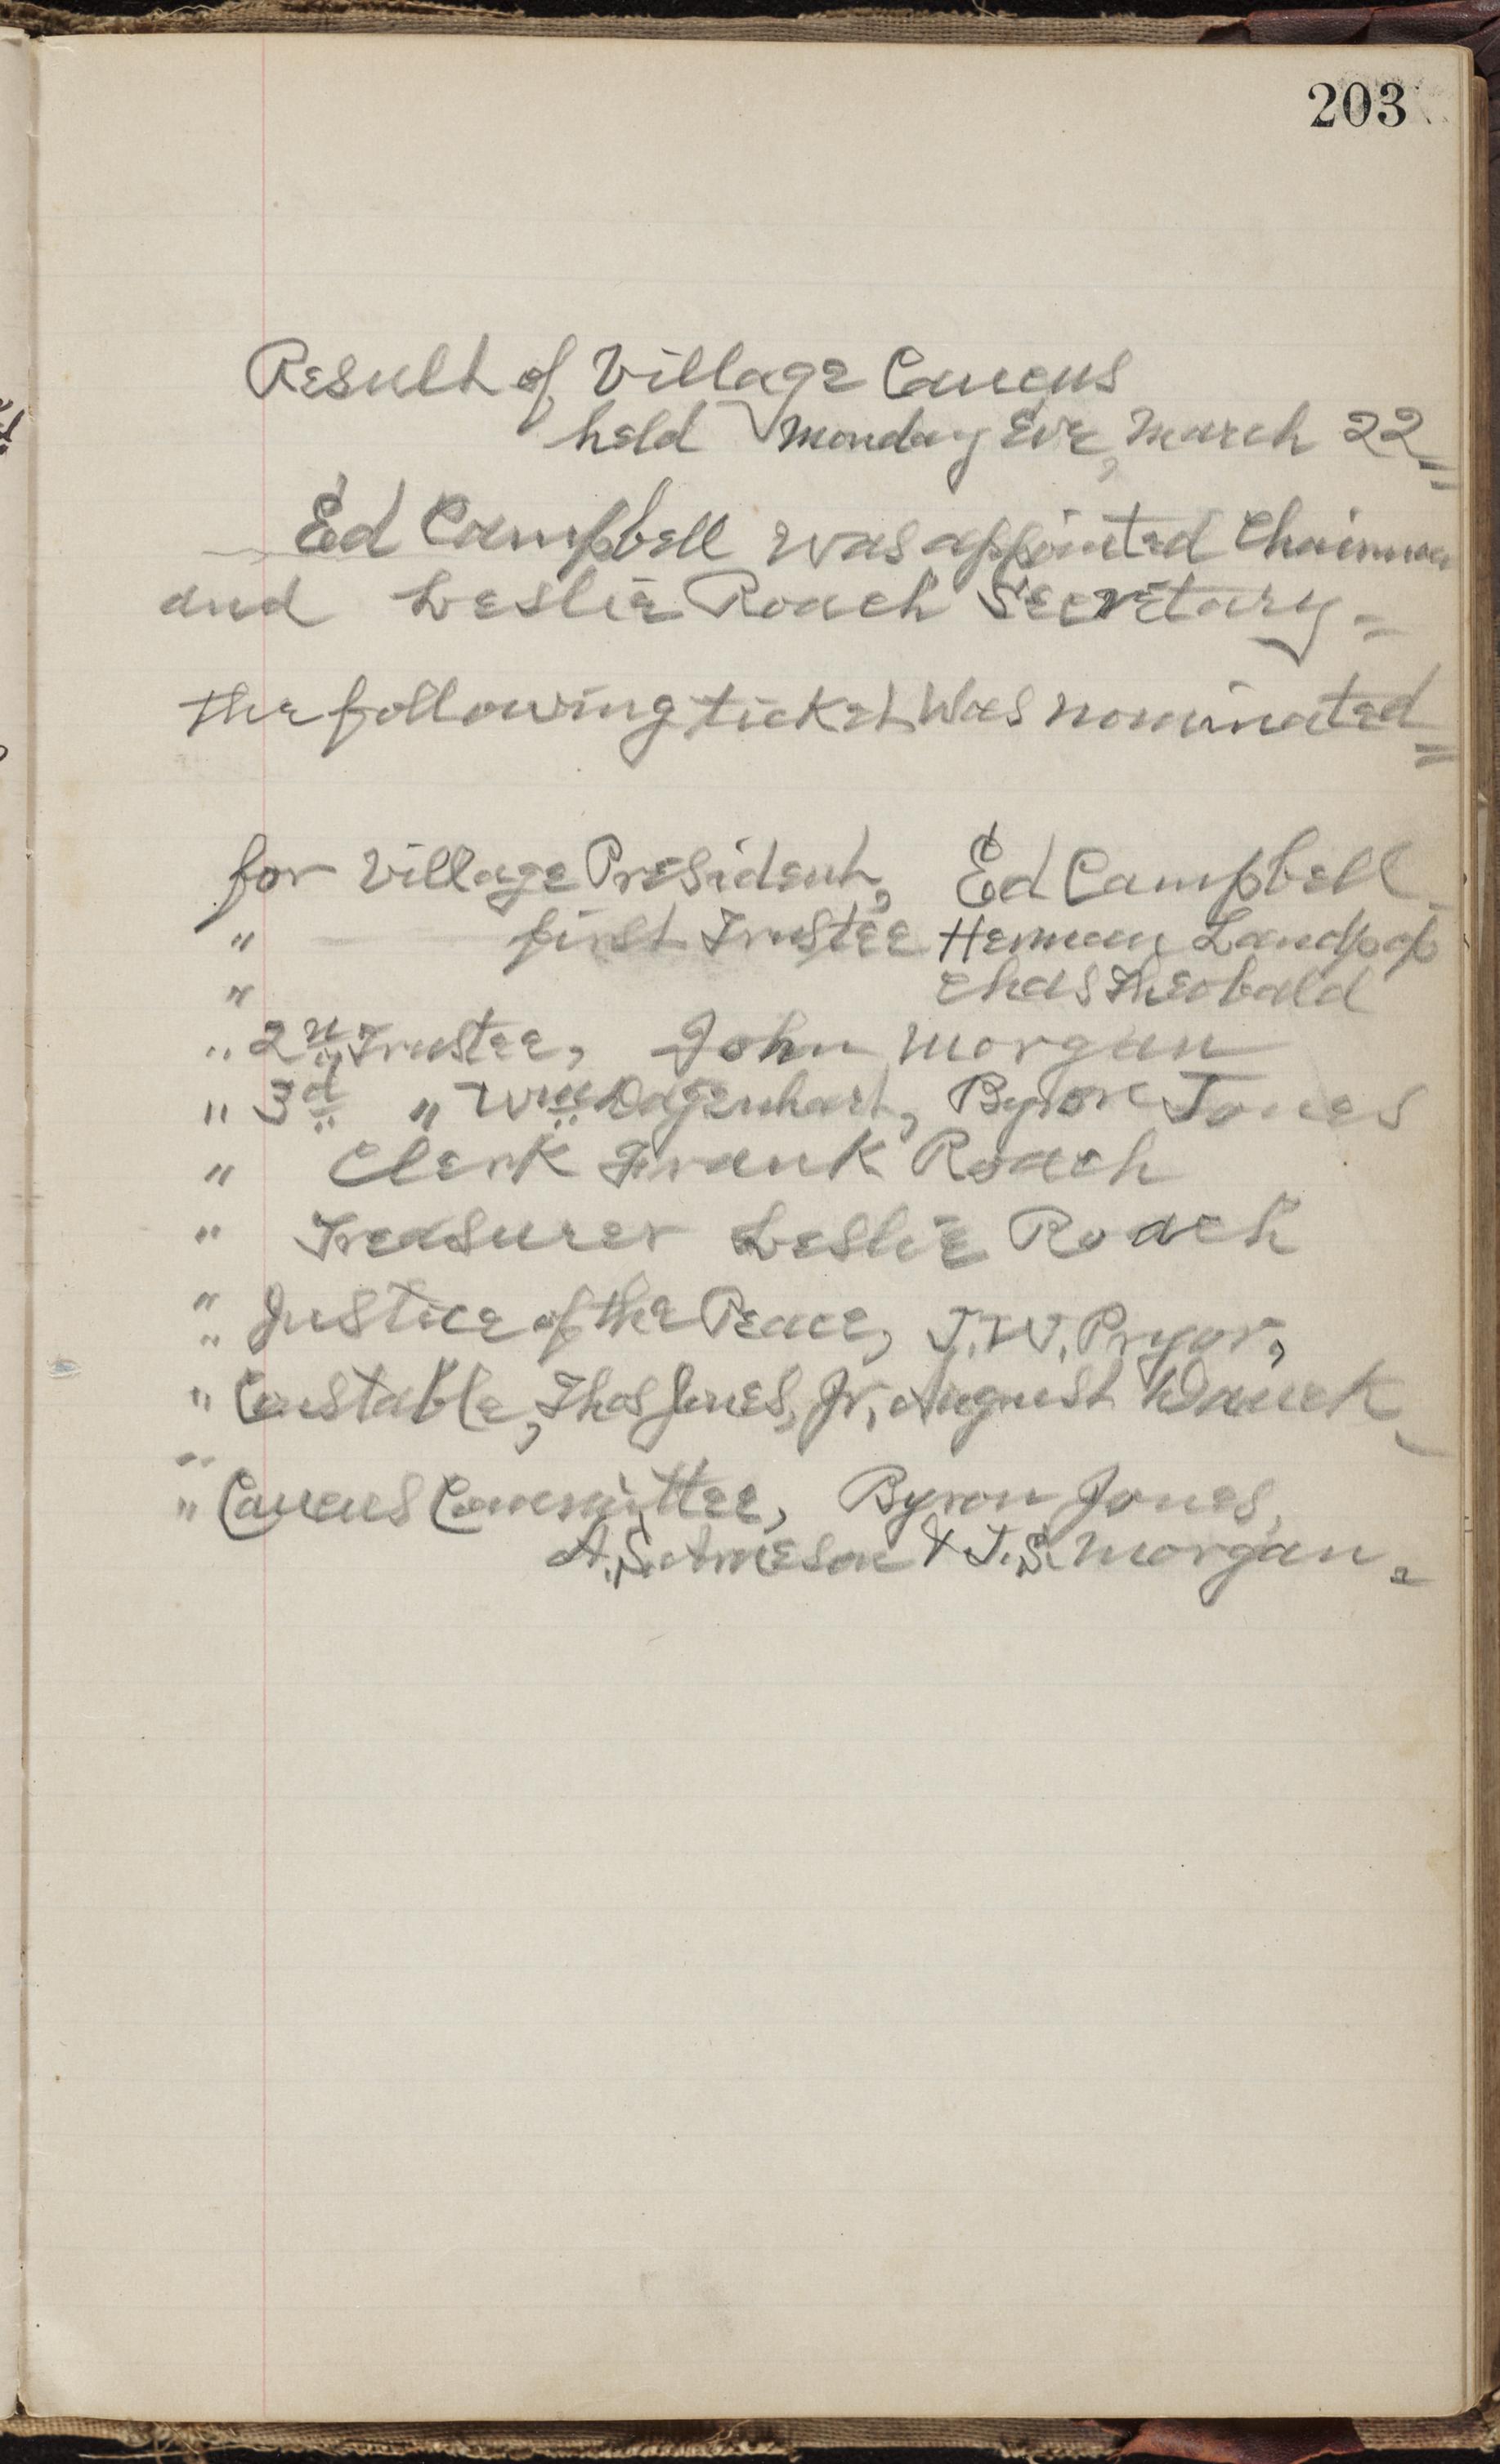 203
Result of Village Caucus
held Monday Eve, March 22
Ed Campbell was appointed Chairman
and Leslie Roach Secretary
the following ticket was nominated
for Village President, Ed Campbell
" first Trustee Herman
" Chas Theobald
" 2nd Trustee, John Morgan
" 3d " Wm Dagenhart, Byron Jones
" Clerk Frank Roach
" Treasurer Leslie Roach
" Justice of the Peace, J.W. Pryor,
" Constable, Thos Jones, Jr, August
" Caucus Committee, Byron Jones,
A.S. Arneson & J.S. Morgan.